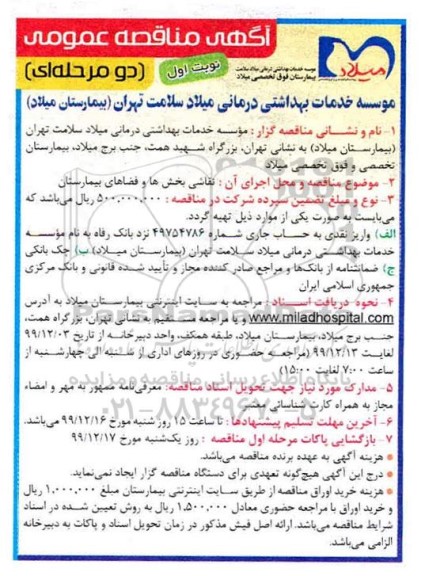 آگهی مناقصه عمومی
(دو مرحله‌ای)
نوبت اول
میلاد
موسسه خدمات بهداشتی درمانی میلاد سلامت
بیمارستان فوق تخصصی میلاد
موسسه خدمات بهداشتی درمانی میلاد سلامت تهران (بیمارستان میلاد)
۱- نام و نشانی مناقصه گزار : مؤسسه خدمات بهداشتی درمانی میلاد سلامت تهران
(بیمارستان میلاد) به نشانی تهران، بزرگراه شهید همت، جنب برج میلاد، بیمارستان
تخصصی و فوق تخصصی میلاد
۲- موضوع مناقصه و محل اجرای آن : نقاشی بخش ها و فضاهای بیمارستان
۳- نوع و مبلغ تضمین سپرده شرکت در مناقصه : ۵۰۰,۰۰۰,۰۰۰ ریال می‌باشد که
می‌بایست به صورت یکی از موارد ذیل تهیه گردد.
الف) واریز نقدی به حساب جاری شماره ۴۹۷۵۴۷۸۶ نزد بانک رفاه به نام مؤسسه
خدمات بهداشتی درمانی میلاد سلامت تهران (بیمارستان میلاد) ب) چک بانکی
ج) ضمانتنامه از بانک‌ها و مراجع صادر کننده مجاز و تأیید شده قانونی و بانک مرکزی
جمهوری اسلامی ایران
۴- نحوه دریافت اسناد : مراجعه به سایت اینترنتی بیمارستان میلاد به آدرس
www.miladhospital.com و یا مراجعه مستقیم به نشانی تهران، بزرگراه همت،
جنب برج میلاد، بیمارستان میلاد، طبقه همکف، واحد دبیرخانه از تاریخ ۹۹/۱۲/۰۳
لغایت ۹۹/۱۲/۱۳ (مراجعه حضوری در روزهای اداری از شنبه الی چهارشنبه از
ساعت ۷:۰۰ لغایت ۱۵:۰۰)
۵- مدارک مورد نیاز جهت تحویل اسناد مناقصه: معرفی‌نامه ممهور به مهر و امضاء
مجاز به همراه کارت شناسائی معتبر
۶- آخرین مهلت تسلیم پیشنهادها : تا ساعت ۱۵ روز شنبه مورخ ۹۹/۱۲/۱۶ می‌باشد.
۷- بازگشایی پاکات مرحله اول مناقصه : روز یک‌شنبه مورخ ۹۹/۱۲/۱۷
* هزینه آگهی به عهده برنده مناقصه می‌باشد.
* درج این آگهی هیچ‌گونه تعهدی برای دستگاه مناقصه گزار ایجاد نمی‌نماید.
* هزینه خرید اوراق مناقصه از طریق سایت اینترنتی بیمارستان مبلغ ۱,۰۰۰,۰۰۰ ریال
و خرید اوراق با مراجعه حضوری معادل ۱,۵۰۰,۰۰۰ ریال به روش تعیین شده در اسناد
شرایط مناقصه می‌باشد. ارائه اصل فیش مذکور در زمان تحویل اسناد و پاکات به دبیرخانه
الزامی می‌باشد.
پایگاه اطلاع رسانی مناقصه و مزایده
۰۲۱-۸۸۳۴۹۶۷۰-۵